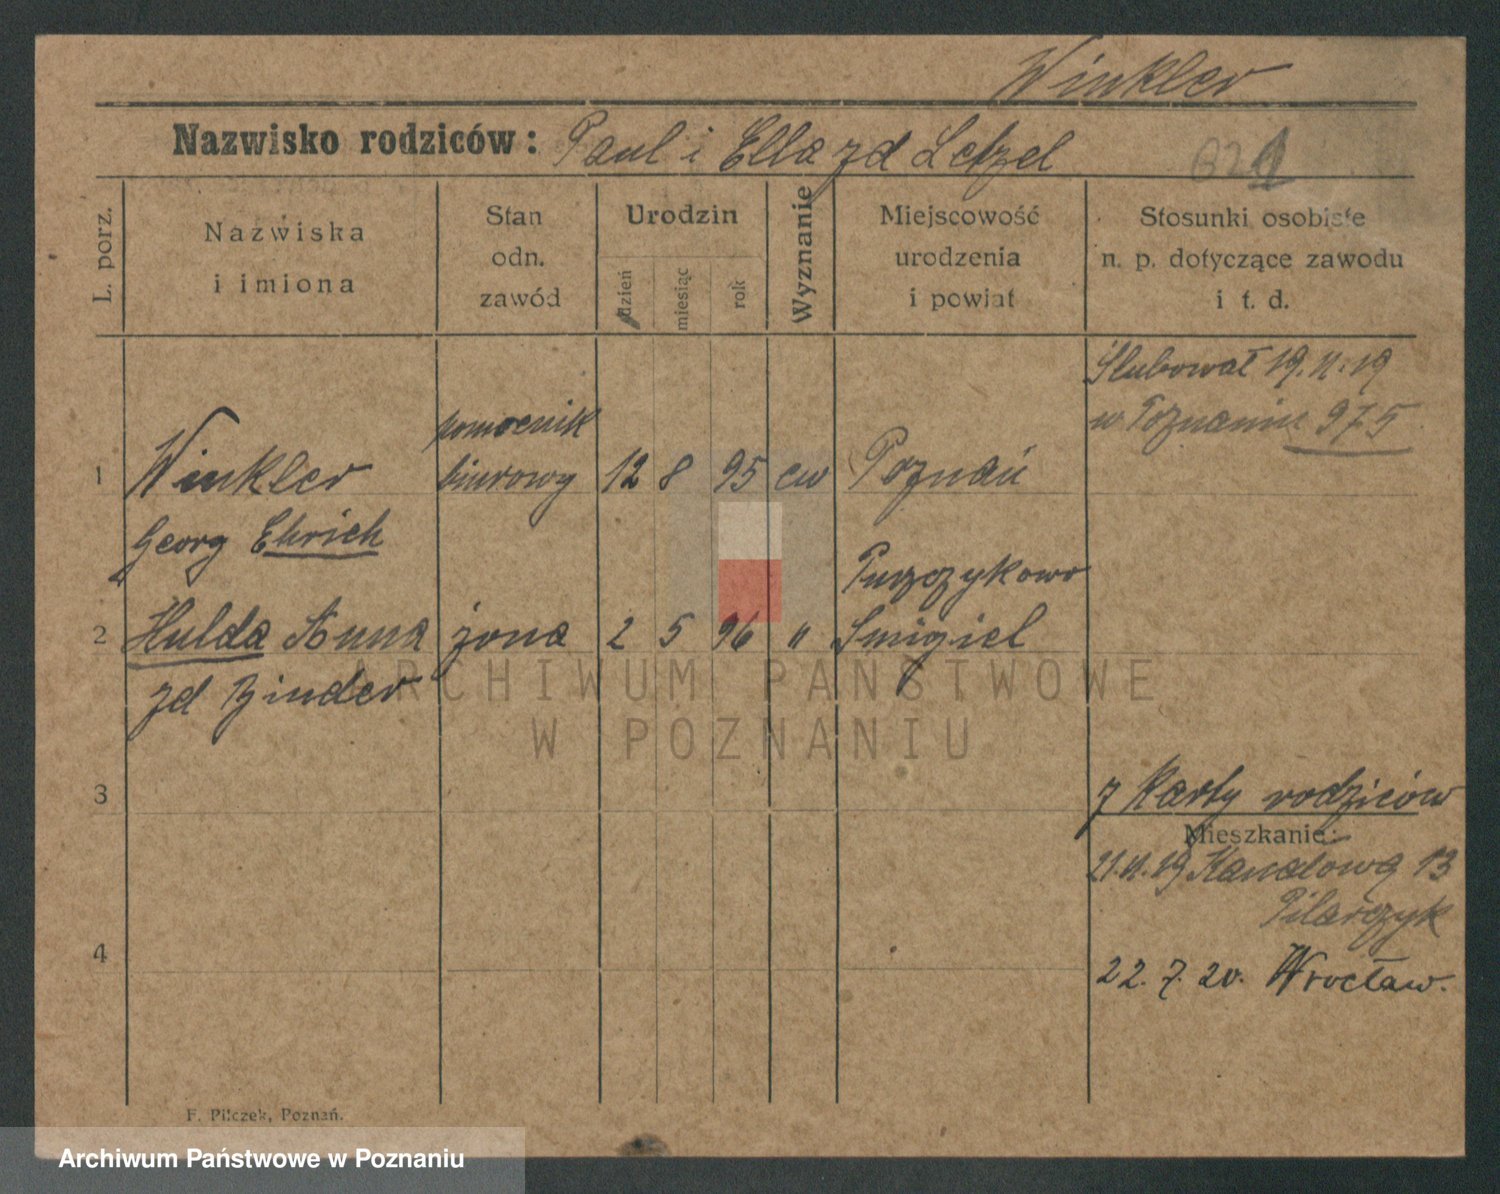 Winkler
Nazwisko rodziców: Paul i Ella zd Letzel
L. porz.
Nazwiska
i imiona
Stan
odn.
zawód
Urodzin
dzień
miesiąc
rok
Wyznanie
Miejscowość
urodzenia
i powiat
Stosunki osobiste
n. p. dotyczące zawodu
i t. d.
Ślubował 19.11.19
w Poznaniu 975
pomocnik
1 Winkler biurowy 12 8 95 ew Poznań
Georg Ehrich
Puszczykowo
2 Hulda Anna żona 2 5 96 " Śmigiel
zd Binder
3
z karty rodziców
Mieszkanie:
21.11.19 Kanałowa 13
Pilarczyk
4
22. 7. 20. Wrocław.
F. Pilczek, Poznań.
ARCHIWUM PAŃSTWOWE
W POZNANIU
Archiwum Państwowe w Poznaniu